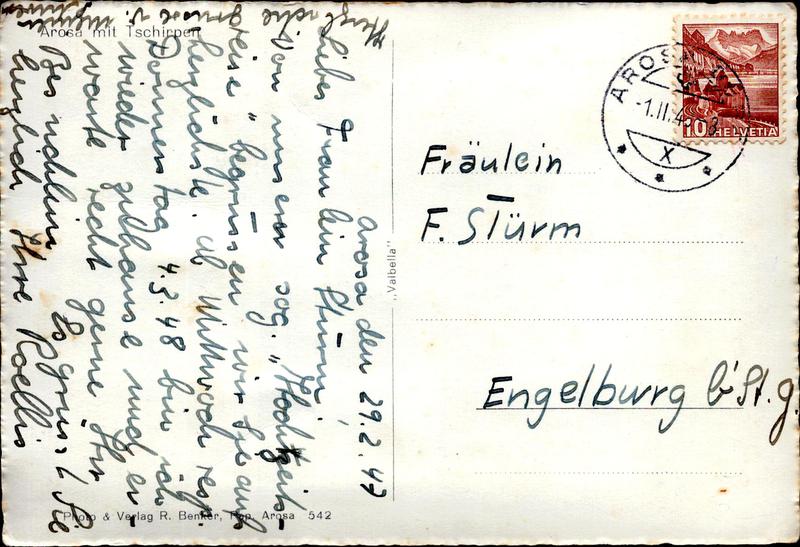 Arosa mit Tschirpen
Arosa den 29.2.47
Liebes Fräulein Stürm!
Von unserer sog. „Hochzeits-
reise" begrüssen wir Sie aufs
herzlichste. Ab Mittwoch resp.
Donnerstag 4.3.48 bin ich
wieder zuhause und er-
warte recht gerne Ihr
Es grüsst Sie
herzlich Ihre Roellis
Herzliche Grüsse
„Valbella"
Photo & Verlag R. Benker, Pap. Arosa 542
AROSA
-1.II.4
10 HELVETIA
X
Fräulein
F. Stürm
Engelburg b/St. g.